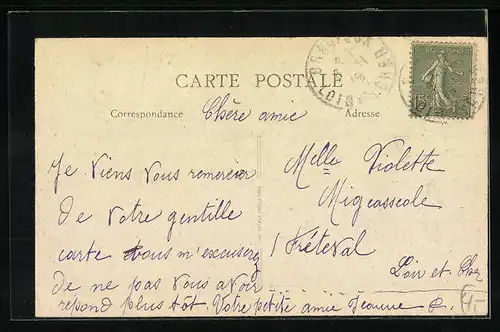 CARTE POSTALE
Correspondance
Adresse
Chère amie
Je viens vous remercier
de votre gentille
carte vous m'excuserez
de ne pas vous avoir
répond plus tôt. Votre petite amie Jeanne R.
Melle Violette
Migeasseole
Fréteval
Loir et Cher
15
4.-